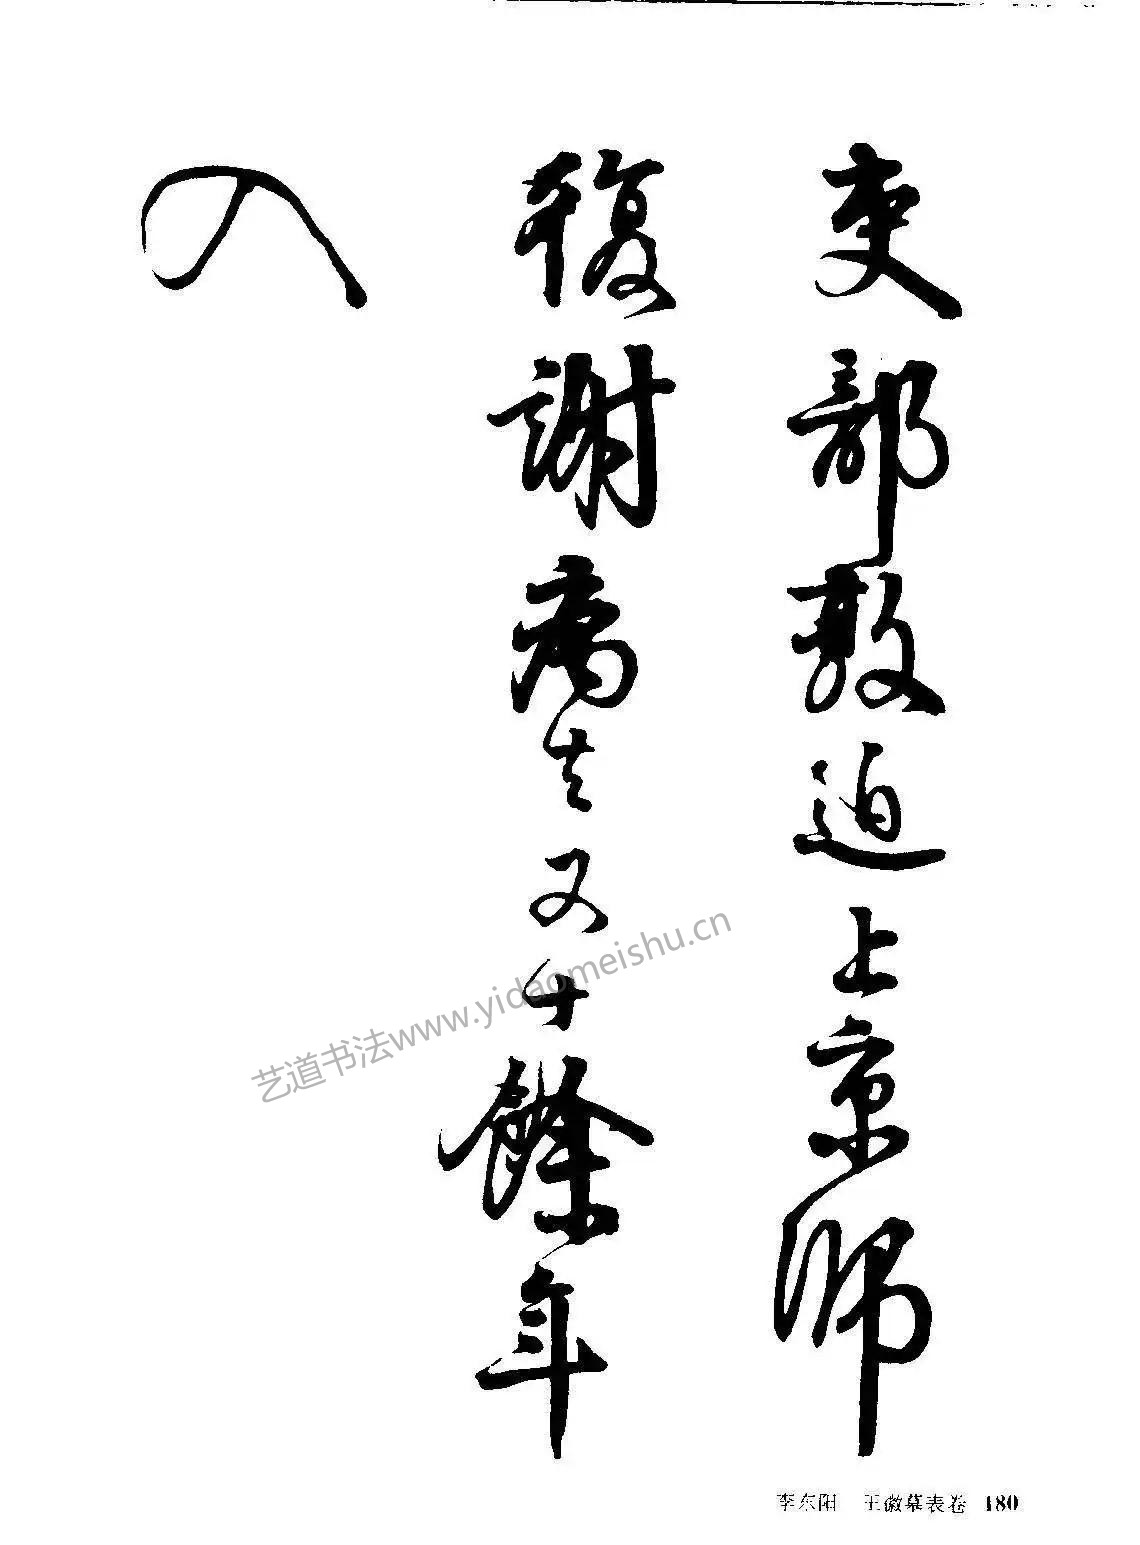 吏部敦迫上京師
復謝病去又十餘年
艺道书法www.yidaomeishu.cn
李东阳 王徽墓表卷 180